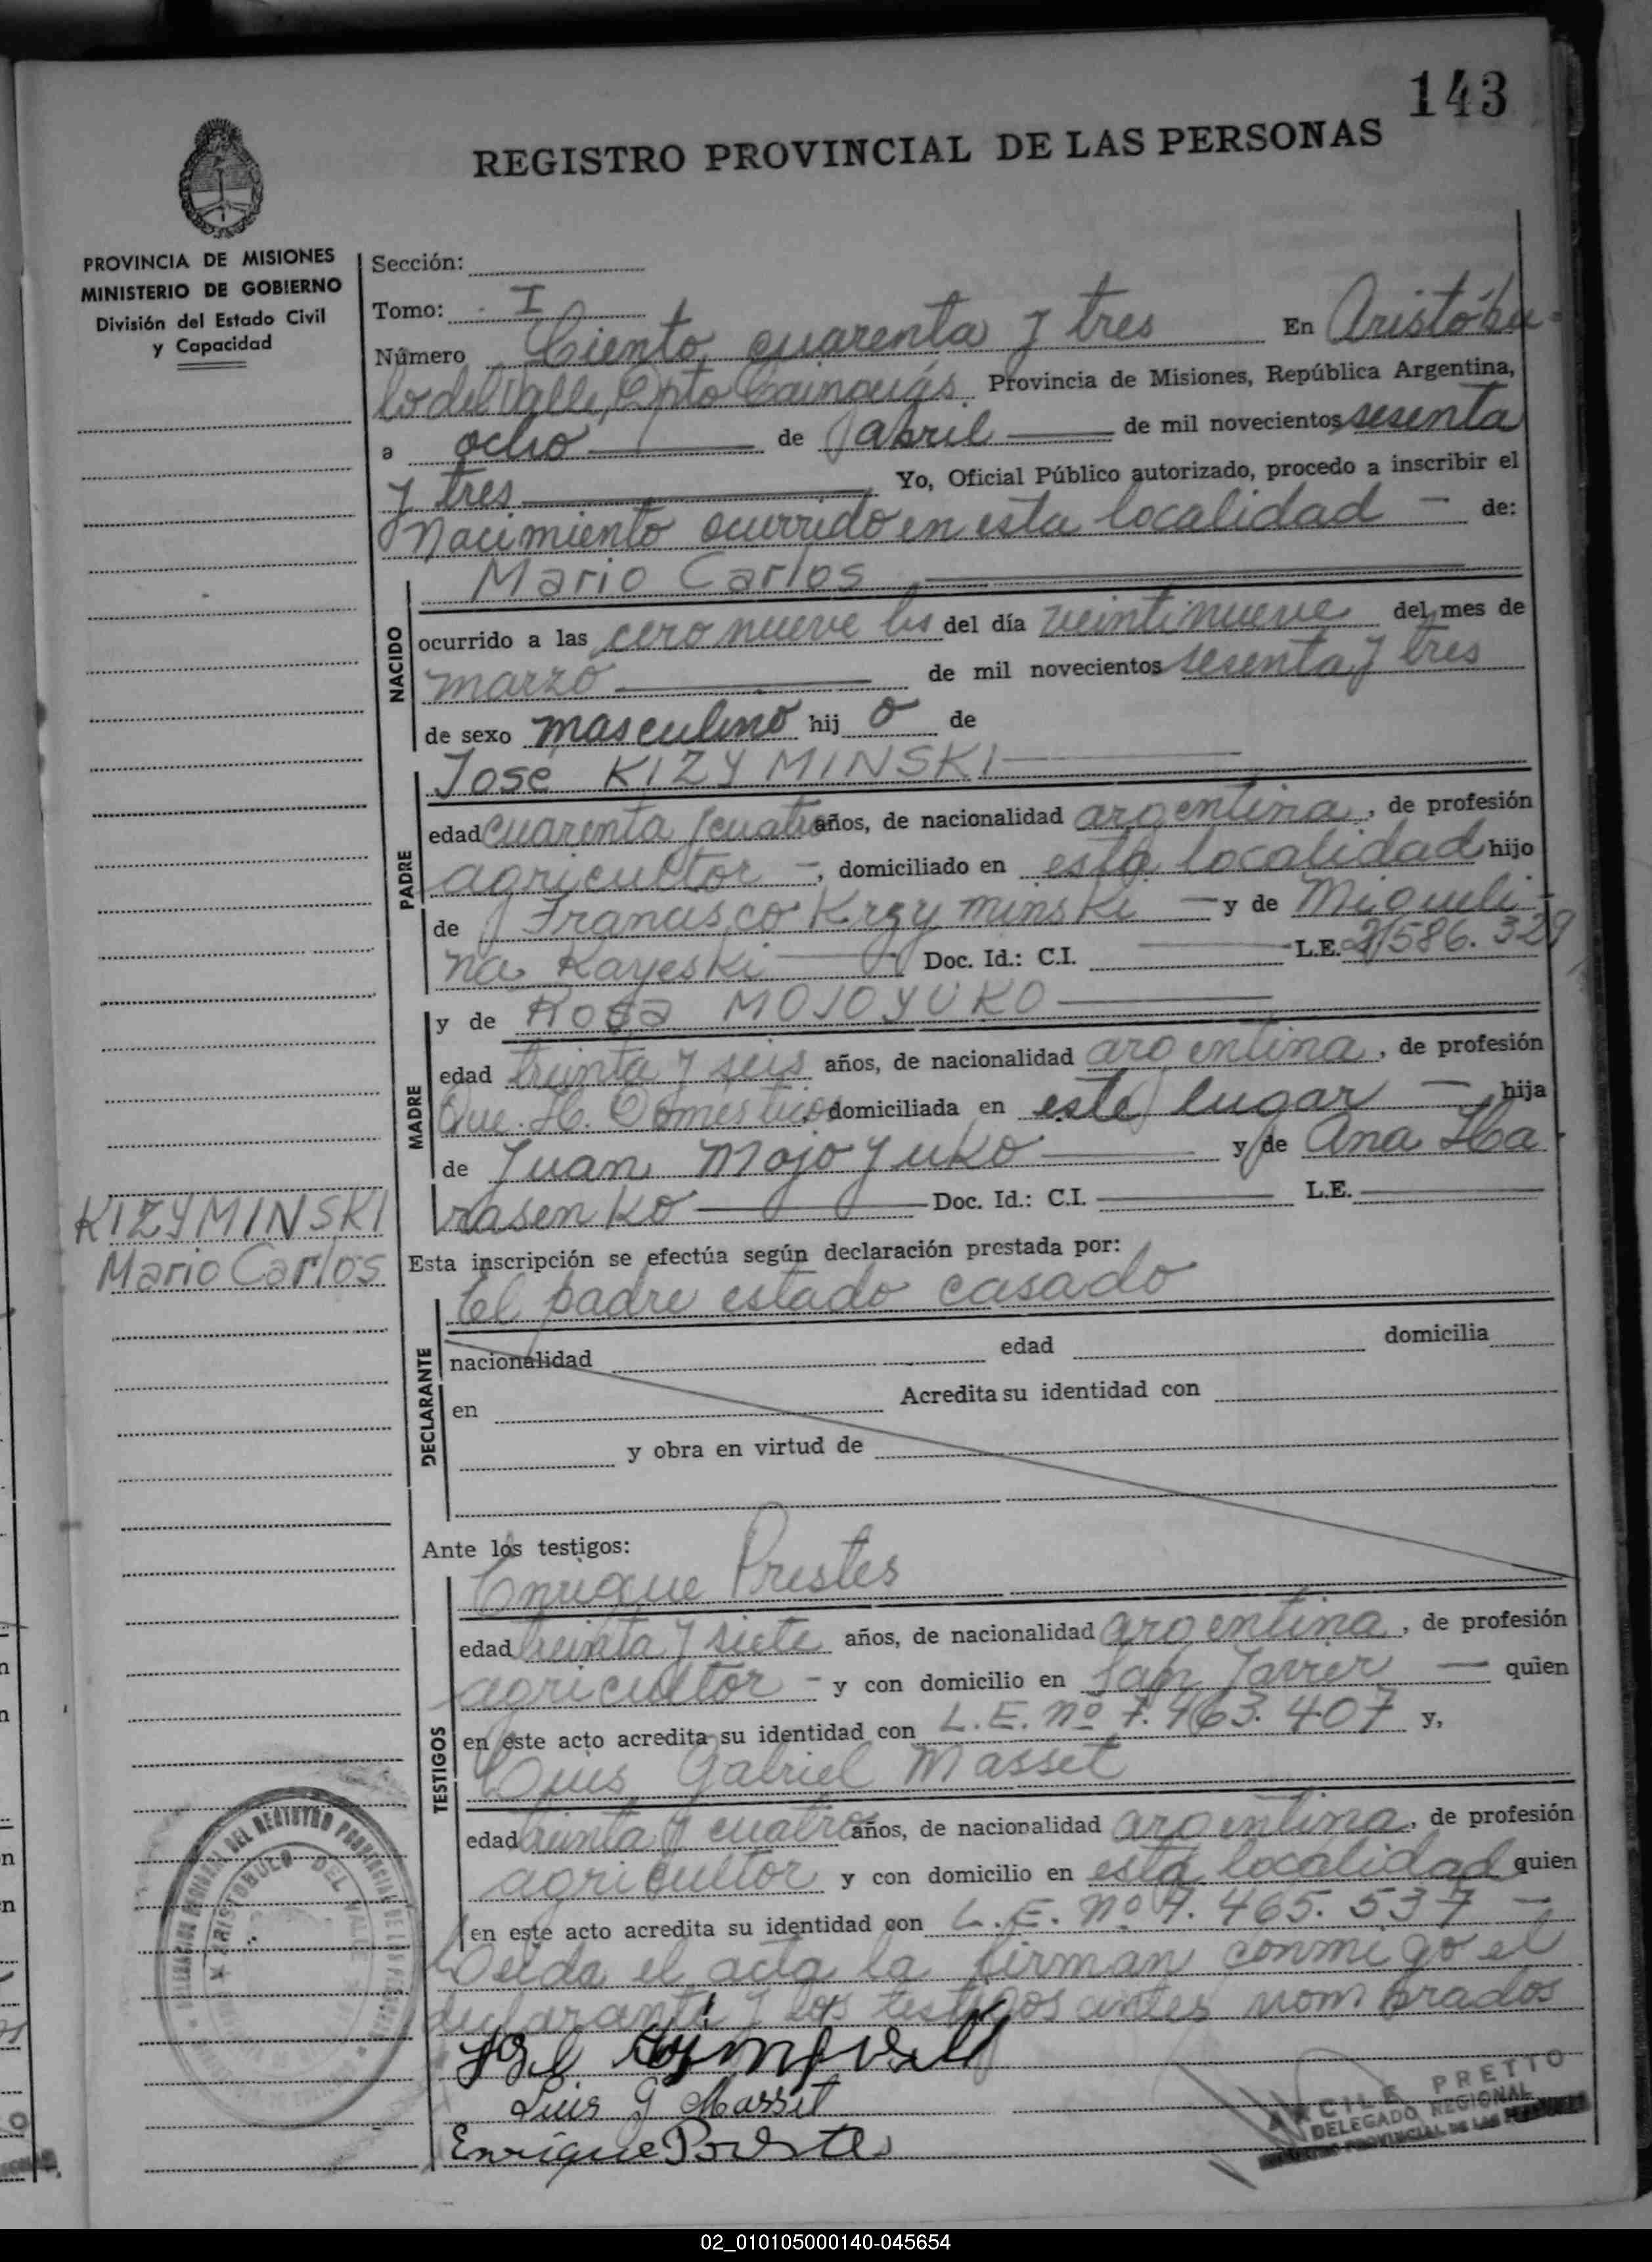 143
REGISTRO PROVINCIAL DE LAS PERSONAS
PROVINCIA DE MISIONES
MINISTERIO DE GOBIERNO
División del Estado Civil
y Capacidad
Sección:
Tomo: I
Número Ciento cuarenta y tres En Aristóbu-
lo del Valle, Dpto Cainguás Provincia de Misiones, República Argentina,
a ocho de abril de mil novecientos sesenta
y tres Yo, Oficial Público autorizado, procedo a inscribir el
Nacimiento ocurrido en esta localidad de:
NACIDO
Mario Carlos
ocurrido a las cero nueve hs del día veintinueve del mes de
marzo de mil novecientos sesenta y tres
de sexo masculino hij o de
PADRE
José KIZYMINSKI
edad cuarenta y cuatro años, de nacionalidad argentina, de profesión
agricultor -, domiciliado en esta localidad hijo
de Francisco Krzyminski y de Miqueli-
na Kayeski Doc. Id.: C.I. L.E. 586.329
MADRE
y de Rosa MOJOYUKO
edad treinta y seis años, de nacionalidad argentina, de profesión
Que. H. Domésticos domiciliada en este lugar hija
de Juan Mojoyuko y de Ana Ha
rasenko Doc. Id.: C.I. L.E.
KIZYMINSKI
Mario Carlos
Esta inscripción se efectúa según declaración prestada por:
DECLARANTE
El padre estado casado
nacionalidad edad domicilia
en Acredita su identidad con
y obra en virtud de
Ante los testigos:
TESTIGOS
Enrique Prestes
edad treinta y siete años, de nacionalidad argentina, de profesión
agricultor - y con domicilio en San Javier quien
en este acto acredita su identidad con L.E. nº 7.463.407 y,
Luis Gabriel Masset
edad treinta y cuatro años, de nacionalidad argentina, de profesión
agricultor y con domicilio en esta localidad quien
en este acto acredita su identidad con L.E. nº 7.465.537
Leida el acta la firman conmigo el
declarante y los testigos antes nombrados
Luis G Masset
Enrique Prestes
DELEGACION REGIONAL DEL REGISTRO PROVINCIAL DE LAS PERSONAS
ARISTOBULO DEL VALLE
ARCILE PRETTO
DELEGADO REGIONAL
REGISTRO PROVINCIAL DE LAS PERSONAS
02_010105000140-045654